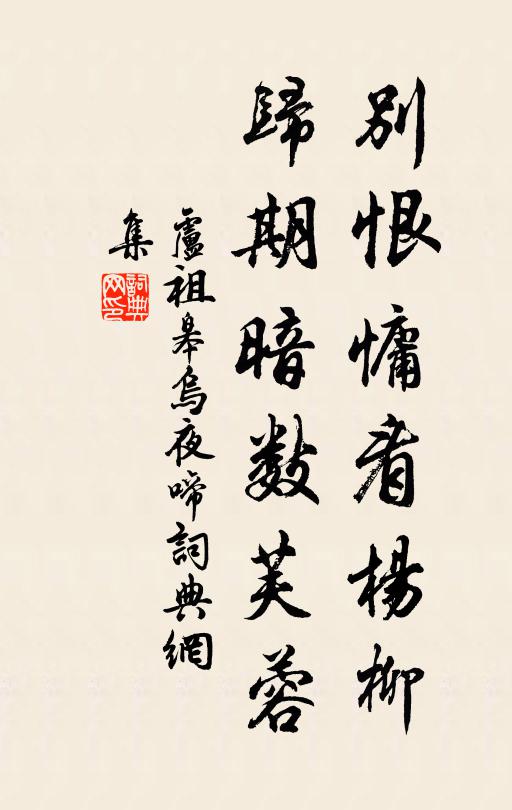 別恨慵看楊柳
歸期暗數芙蓉
盧祖皋烏夜啼詞典網
集
詞典
网印